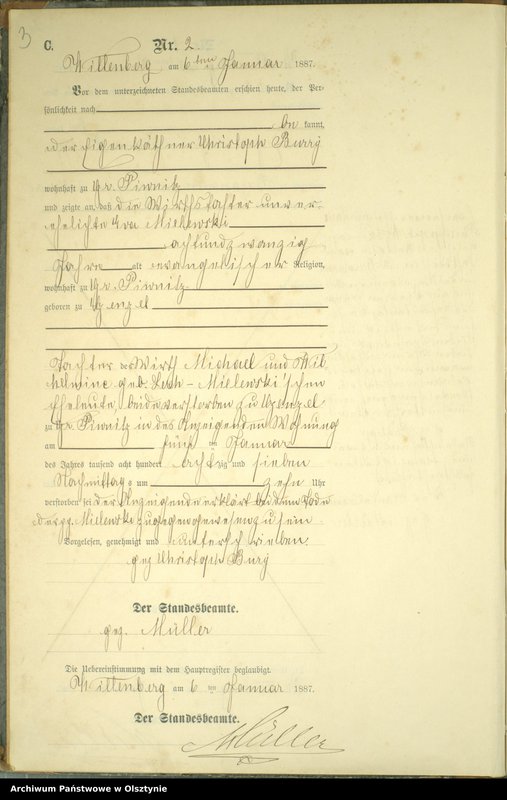 3
C. Nr. 2
Wittenberg am 6ten Januar 1887.
Vor dem unterzeichneten Standesbeamten erschien heute, der Per-
sönlichkeit nach
be kannt,
der Eigenkäthner Christoph Burry
wohnhaft zu Gr. Piwnitz
und zeigte an, daß die Wirthstochter unver-
ehelichte Eva Mielewski
achtundzwanzig
Jahre alt evangelischer Religion,
wohnhaft zu Gr. Piwnitz
geboren zu
Tochter des Wirth Michael und Wil-
helmine geb. Lesh - Mielewski'schen
Eheleute, beide verstorben zu
zu Gr. Piwnitz in des Anzeigenden Wohnung
am fünf ten Januar
des Jahres tausend acht hundert achtzig und sieben
Nachmittags um zehn Uhr
verstorben sei der Anzeigende erklärt bei dem Tode
der pp. Mielewski zugegen gewesen zu sein.
Vorgelesen, genehmigt und unterschrieben
gez Christoph Burry
Der Standesbeamte.
gez. Müller
Die Uebereinstimmung mit dem Hauptregister beglaubigt.
Wittenberg am 6 ten Januar 1887.
Der Standesbeamte.
Müller
Archiwum Państwowe w Olsztynie